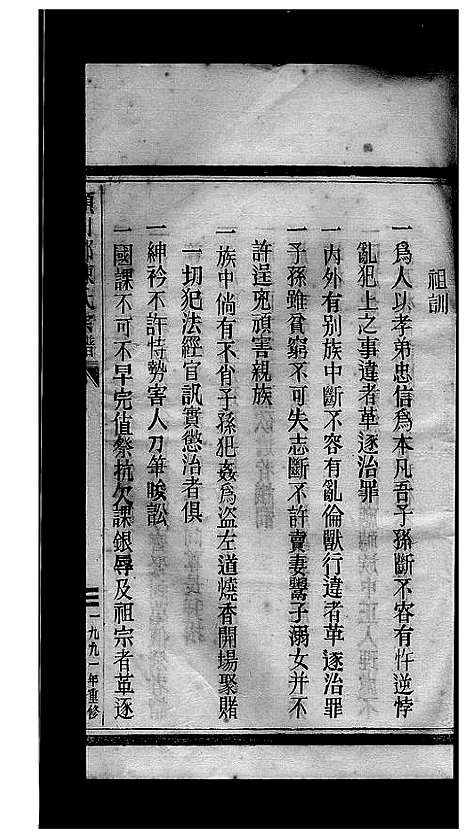 祖訓
一爲人以孝弟忠信爲本凡吾子孫斷不容有忤逆悖
亂犯上之事違者革逐治罪
一內外有别族中斷不容有亂倫獸行違者革逐治罪
一子孫雖貧窮不可失志斷不許賣妻鬻子溺女并不
許逞兇頑害親族
一族中倘有不肖子孫犯姦爲盜左道燒香開場聚賭
一切犯法經官訊實懲治者俱
一紳衿不許恃勢害人刀筆唆訟
一國課不可不早完值祭抗欠課銀辱及祖宗者革逐
川郡陳氏宗譜
一九九一年重修